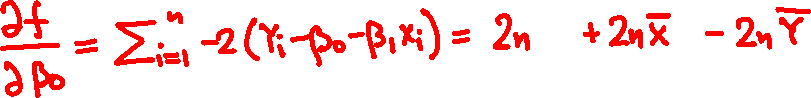 ∂f/∂β₀ = ∑ᵢ₌₁ⁿ -2(Yᵢ-β₀-β₁xᵢ) = 2n + 2n x̅ - 2n Y̅